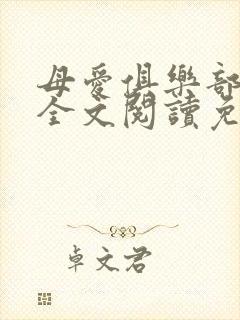 母愛俱樂部
全文閱讀免
卓文君